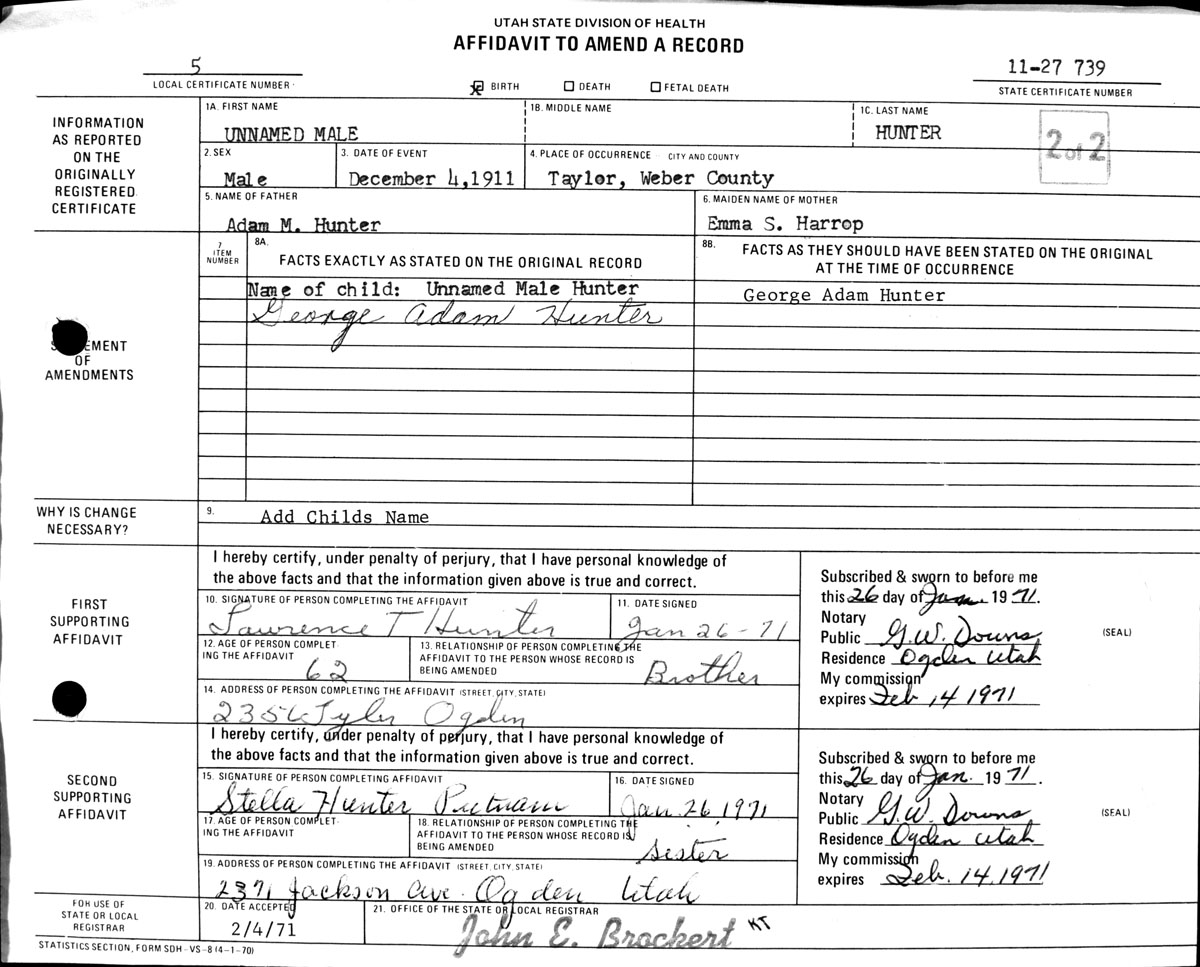 UTAH STATE DIVISION OF HEALTH
AFFIDAVIT TO AMEND A RECORD
5
LOCAL CERTIFICATE NUMBER
BIRTH DEATH FETAL DEATH
11-27 739
STATE CERTIFICATE NUMBER
INFORMATION AS REPORTED ON THE ORIGINALLY REGISTERED CERTIFICATE
1A. FIRST NAME
UNNAMED MALE
1B. MIDDLE NAME
1C. LAST NAME
HUNTER
2 of 2
2. SEX
Male
3. DATE OF EVENT
December 4,1911
4. PLACE OF OCCURRENCE CITY AND COUNTY
Taylor, Weber County
5. NAME OF FATHER
Adam M. Hunter
6. MAIDEN NAME OF MOTHER
Emma S. Harrop
EMENT OF AMENDMENTS
7 ITEM NUMBER
8A.
FACTS EXACTLY AS STATED ON THE ORIGINAL RECORD
8B.
FACTS AS THEY SHOULD HAVE BEEN STATED ON THE ORIGINAL
AT THE TIME OF OCCURRENCE
Name of child: Unnamed Male Hunter
George Adam Hunter
George Adam Hunter
WHY IS CHANGE NECESSARY?
9.
Add Childs Name
FIRST SUPPORTING AFFIDAVIT
I hereby certify, under penalty of perjury, that I have personal knowledge of
the above facts and that the information given above is true and correct.
10. SIGNATURE OF PERSON COMPLETING THE AFFIDAVIT
Lawrence T Hunter
11. DATE SIGNED
Jan 26-71
12. AGE OF PERSON COMPLET-
ING THE AFFIDAVIT
62
13. RELATIONSHIP OF PERSON COMPLETING THE
AFFIDAVIT TO THE PERSON WHOSE RECORD IS
BEING AMENDED
Brother
14. ADDRESS OF PERSON COMPLETING THE AFFIDAVIT (STREET, CITY, STATE)
2356 Tyler Ogden
Subscribed & sworn to before me
this 26 day of Jan. 19 71.
Notary
Public G.W. Downs
Residence Ogden Utah
My commission
expires Feb 14 1971
(SEAL)
SECOND SUPPORTING AFFIDAVIT
I hereby certify, under penalty of perjury, that I have personal knowledge of
the above facts and that the information given above is true and correct.
15. SIGNATURE OF PERSON COMPLETING AFFIDAVIT
Stella Hunter Putnam
16. DATE SIGNED
Jan. 26, 1971
17. AGE OF PERSON COMPLET-
ING THE AFFIDAVIT
18. RELATIONSHIP OF PERSON COMPLETING THE
AFFIDAVIT TO THE PERSON WHOSE RECORD IS
BEING AMENDED
Sister
19. ADDRESS OF PERSON COMPLETING THE AFFIDAVIT (STREET, CITY, STATE)
2371 Jackson Ave. Ogden Utah
Subscribed & sworn to before me
this 26 day of Jan. 19 71.
Notary
Public G.W. Downs
Residence Ogden Utah
My commission
expires Feb. 14, 1971
(SEAL)
FOR USE OF STATE OR LOCAL REGISTRAR
20. DATE ACCEPTED
2/4/71
21. OFFICE OF THE STATE OR LOCAL REGISTRAR
John E. Brockert KT
STATISTICS SECTION, FORM SDH-VS-8 (4-1-70)